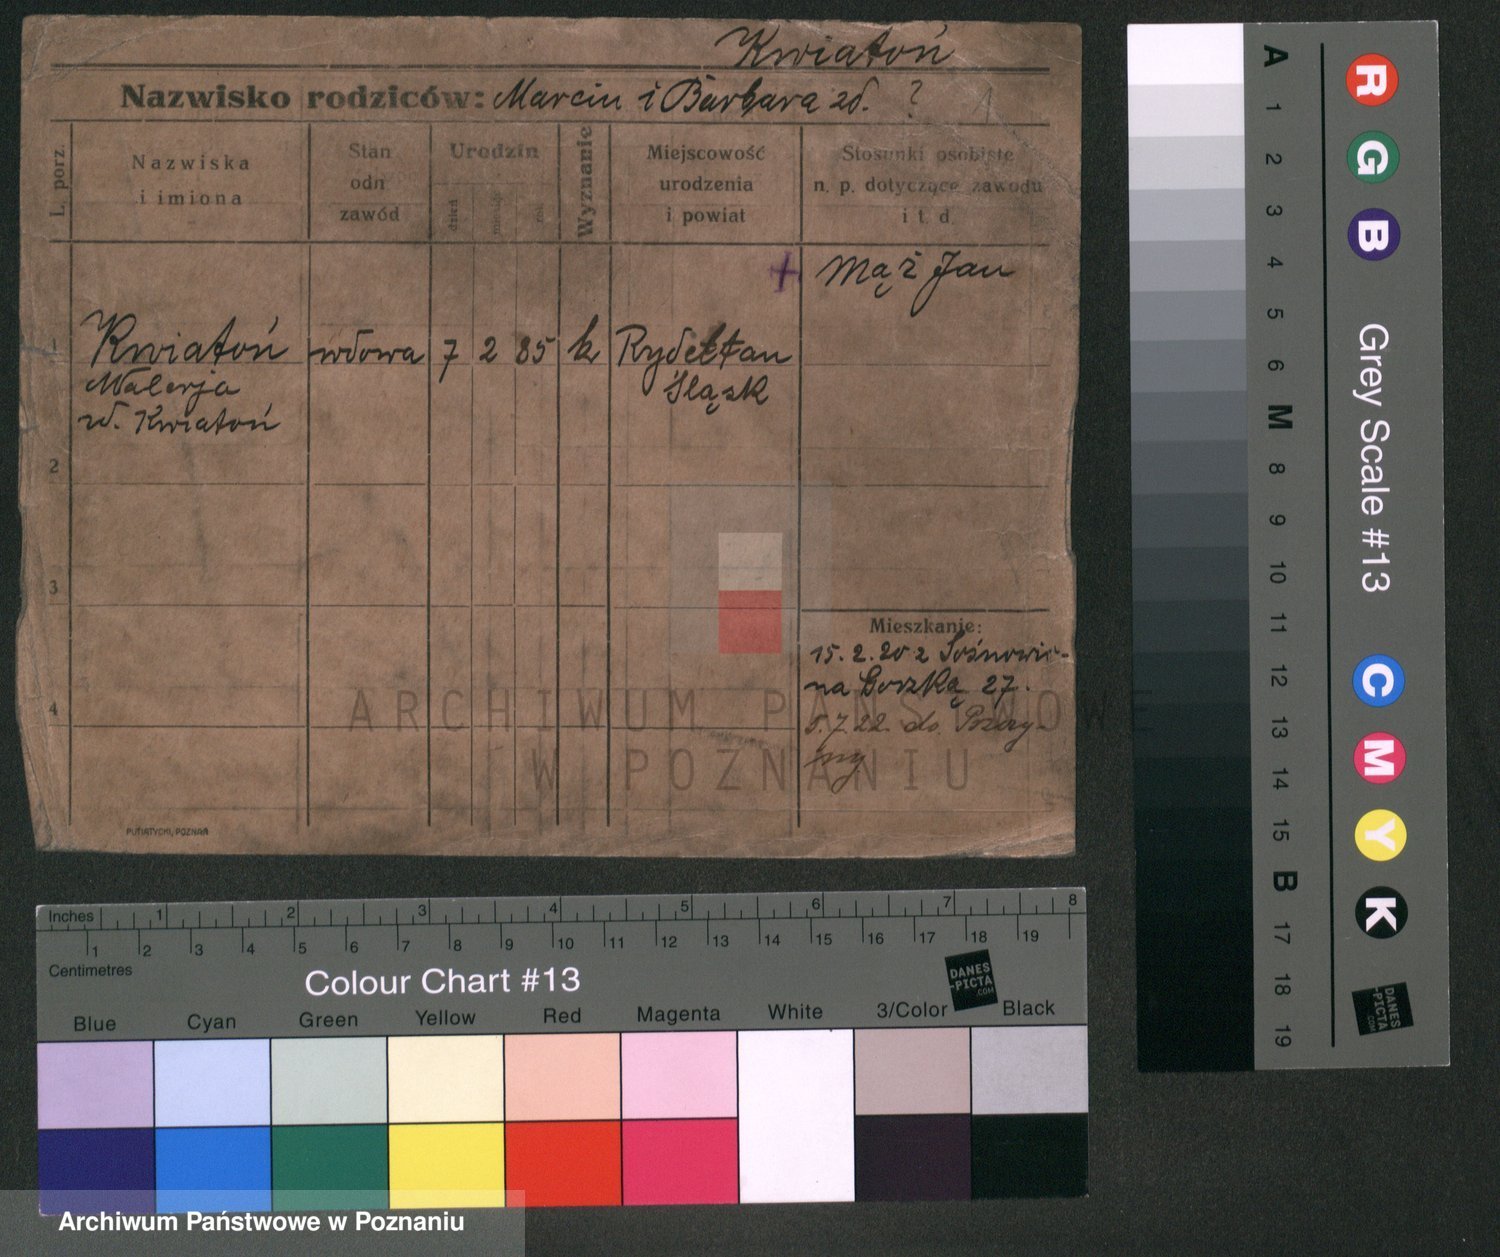 Kwiatoń
Nazwisko rodziców: Marcin i Barbara zd. ?
L. porz.
Nazwiska
i imiona
Stan
odn
zawód
Urodzin
dzień
miesiąc
rok
Wyznanie
Miejscowość
urodzenia
i powiat
Stosunki osobiste
n. p. dotyczące zawodu
i t. d.
+ Mąż Jan
1 Kwiatoń wdowa 7 2 85 k Rydełtau
Walerja Śląsk
zd. Kwiatoń
2
3
4
Mieszkanie:
15. 2. 20 z
na 27.
5.7.22. do
PUTIATYCKI, POZNAŃ
ARCHIWUM PAŃSTWOWE
W POZNANIU
A 1 2 3 4 5 6 M 8 9 10 11 12 13 14 15 B 17 18 19
R G B
Grey Scale #13
C M Y K
DANES
-PICTA
.COM
Inches 1 2 3 4 5 6 7 8
1 2 3 4 5 6 7 8 9 10 11 12 13 14 15 16 17 18 19
Centimetres
Colour Chart #13
DANES
-PICTA
.COM
Blue Cyan Green Yellow Red Magenta White 3/Color Black
Archiwum Państwowe w Poznaniu